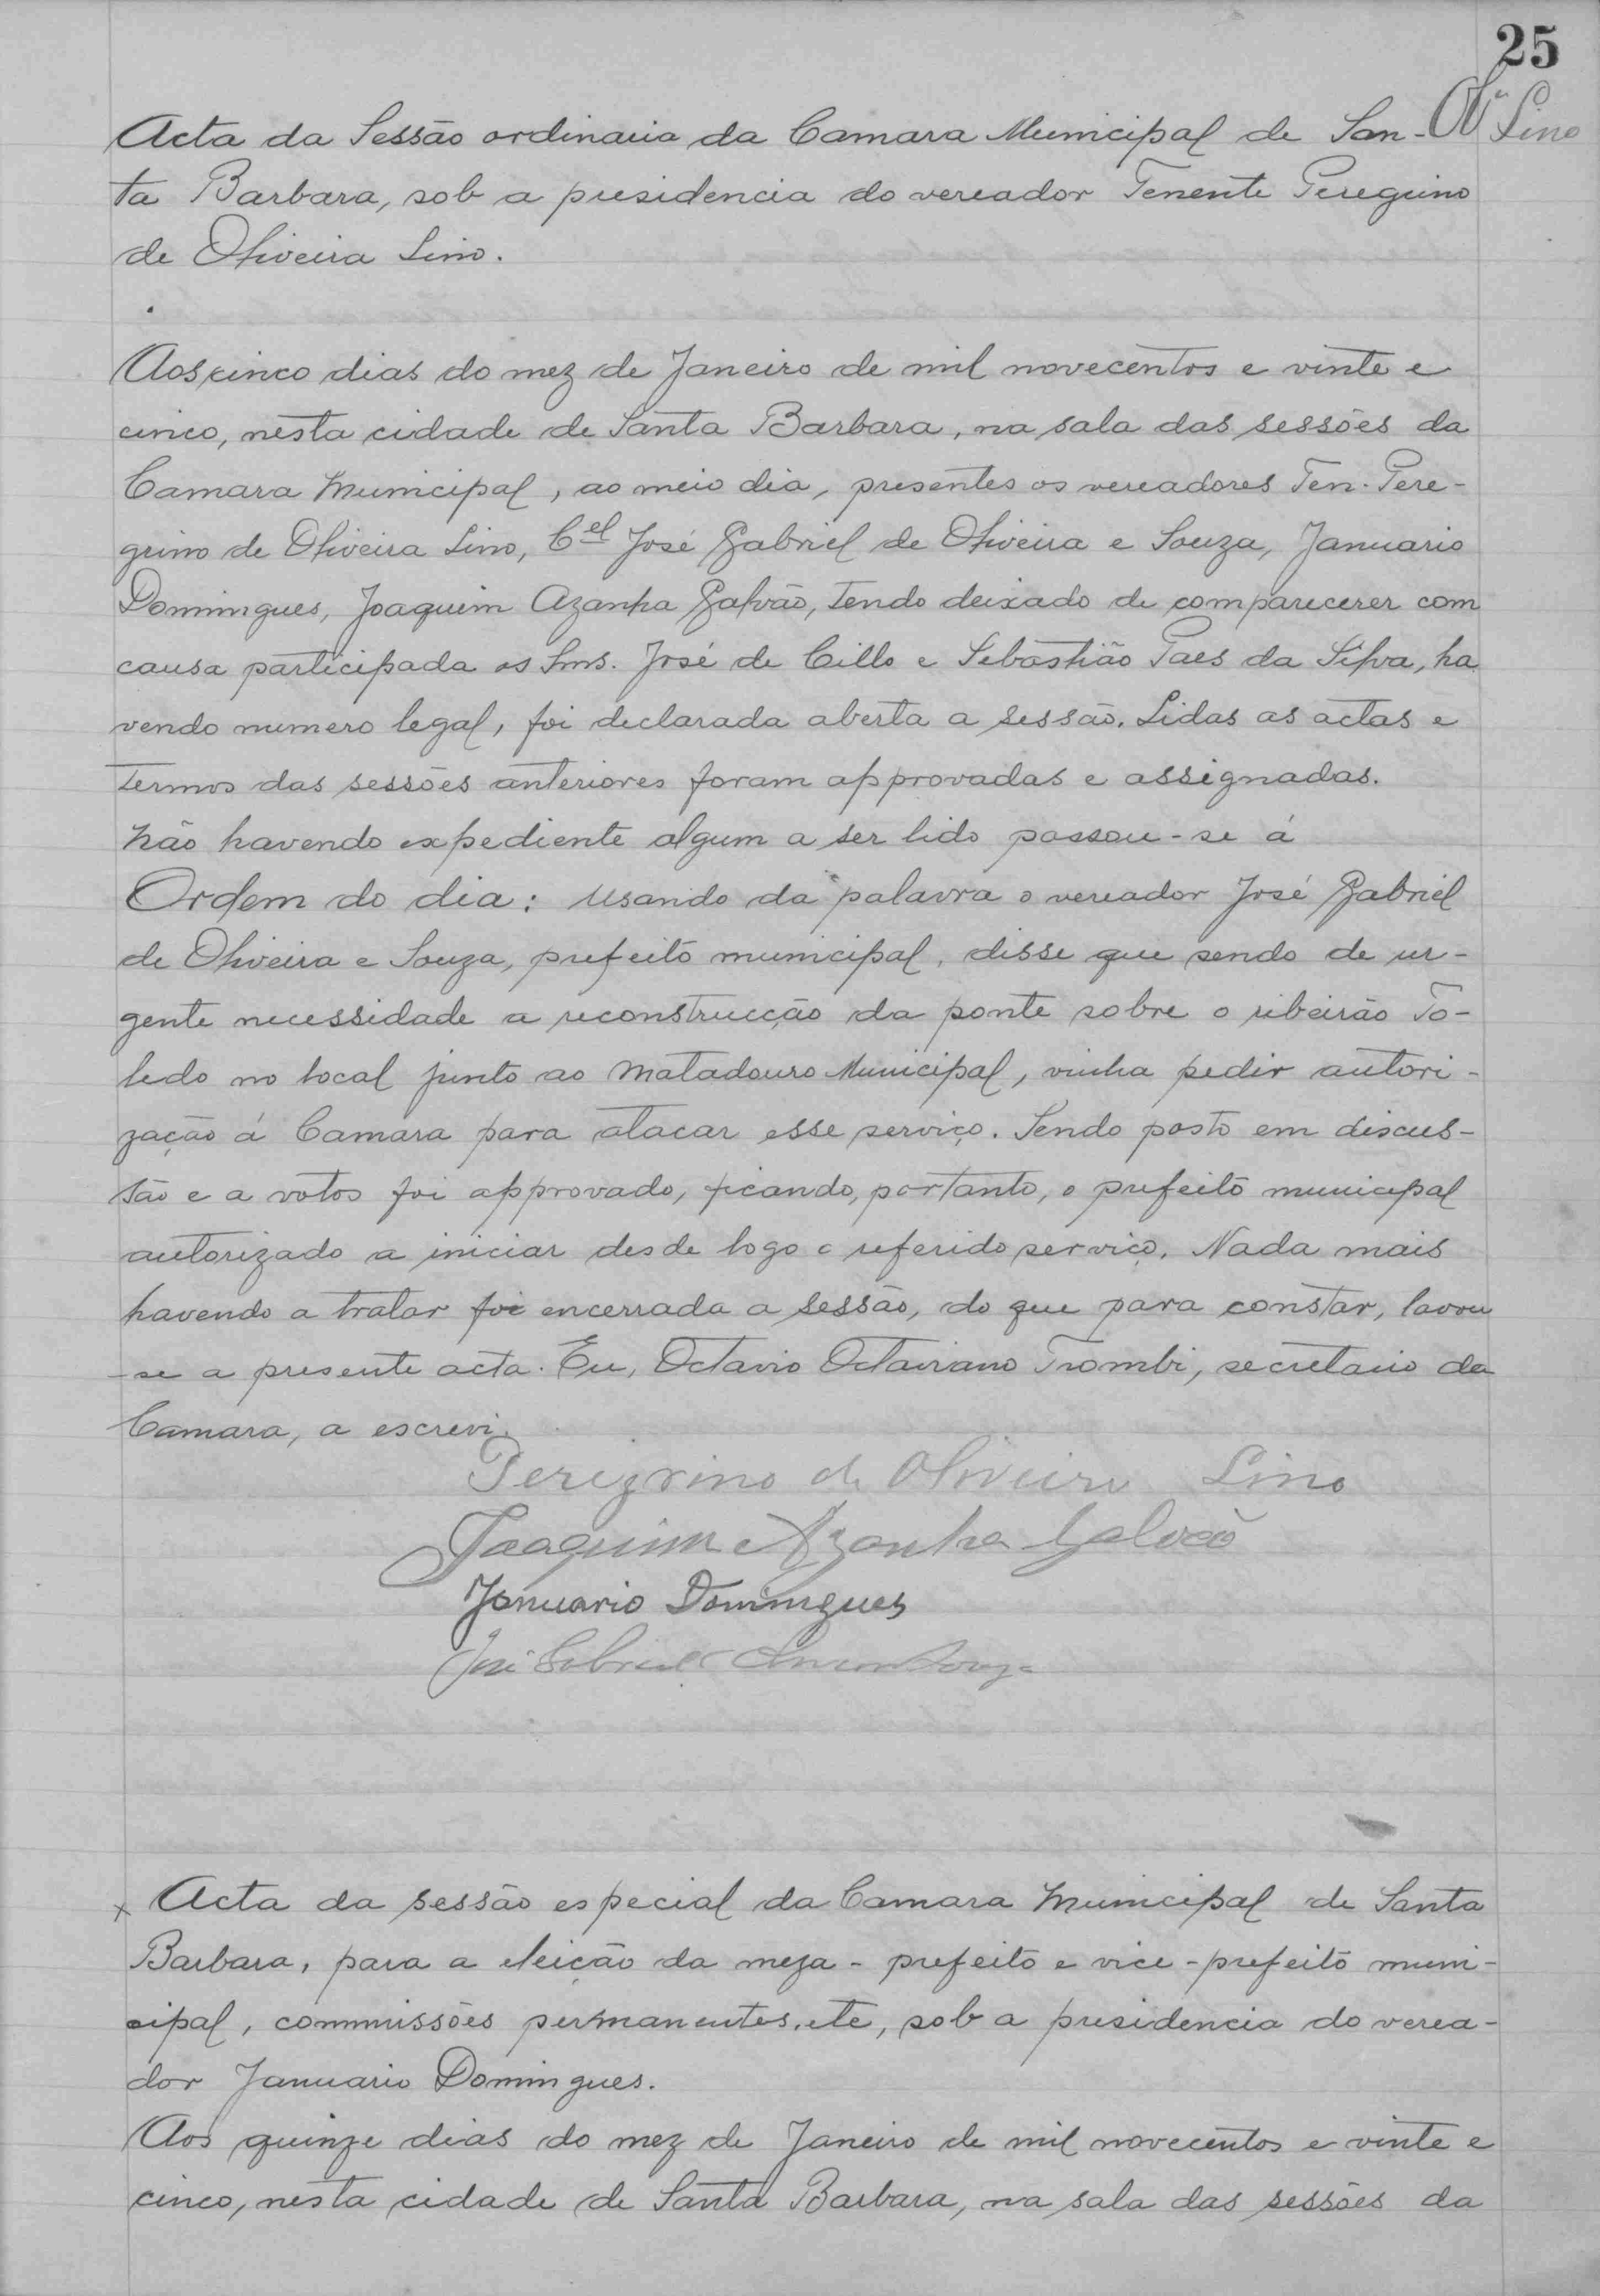 25
Ol.ª Lino
Acta da Sessão ordinaria da Camara Municipal de San-
ta Barbara, sob a presidencia do vereador Tenente Peregrino
de Oliveira Lino.
Aos cinco dias do mez de Janeiro de mil novecentos e vinte e
cinco, nesta cidade de Santa Barbara, na sala das sessões da
Camara Municipal, ao meio dia, presentes os vereadores Ten. Pere-
grino de Oliveira Lino, Cel José Gabriel de Oliveira e Souza, Januario
Domingues, Joaquim Azanha Galvão, tendo deixado de comparecerer com
causa participada os Snrs. José de Cillo e Sebastião Paes da Silva, ha
vendo numero legal, foi declarada aberta a sessão. Lidas as actas e
termos das sessões anteriores foram approvadas e assignadas.
Não havendo expediente algum a ser lido passou-se á
Ordem do dia: Usando da palavra o vereador José Gabriel
de Oliveira e Souza, prefeito municipal, disse que sendo de ur-
gente necessidade a reconstrucção da ponte sobre o ribeirão To-
ledo no local junto ao Matadouro Municipal, vinha pedir autori-
zação á Camara para atacar esse serviço. Sendo posto em discus-
são e a votos foi approvado, ficando, portanto, o prefeito municipal
autorizado a iniciar desde logo o referido serviço. Nada mais
havendo a tratar foi encerrada a sessão, do que para constar, lavrou
-se a presente acta. Eu, Octavio Octaviano Trombi, secretario da
Camara, a escrevi.
Peregrino de Oliveira Lino
Joaquim Azanha Galvão
Januario Domingues
José Gabriel Oliveira Souza
x Acta da sessão especial da Camara Municipal de Santa
Barbara, para a eleição da meza - prefeito e vice-prefeito muni-
cipal, commissões permanentes, etc, sob a presidencia do verea-
dor Januario Domingues.
Aos quinze dias do mez de Janeiro de mil novecentos e vinte e
cinco, nesta cidade de Santa Barbara, na sala das sessões da